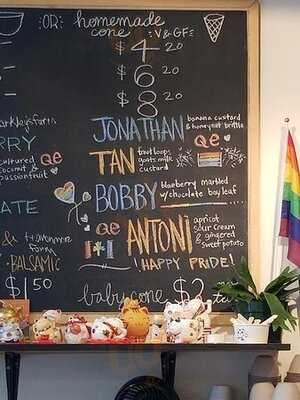 OR: homemade
cone
V & GF
$4.20
$6.20
$8
RRY
cultured
coconut &
passionfruit
QE
JONATHAN
banana custard
& honeynut brittle
QE
TAN
fruit loops
goats milk
custard
BOBBY
blueberry marbled
w/ chocolate bay leaf
QE
ANTONI
apricot
sour cream
& gingered
sweet potato
ATE
&
BALSAMIC
$1.50
! HAPPY PRIDE!
baby cone $2.